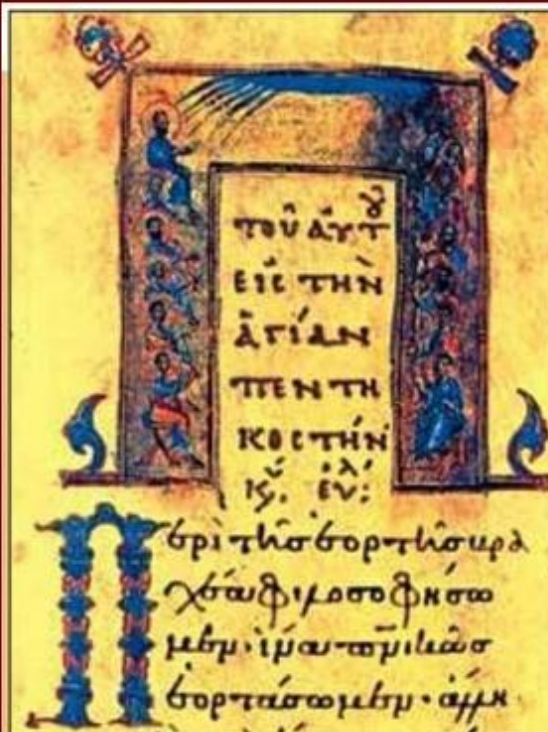 ΤΟΥ͂ ΑΥΤΟΥ
ΕΙϹ ΤῊΝ
ἉΓΊΑΝ
ΠΕΝΤΗ
ΚΟϹΤΉΝ
Περὶ τῆσ ἑορτῆσ βρα
χέα φιλοσοφήσω
μεν· ἵνα πν̅ικῶσ
ἑορτάσωμεν· ἄλλη